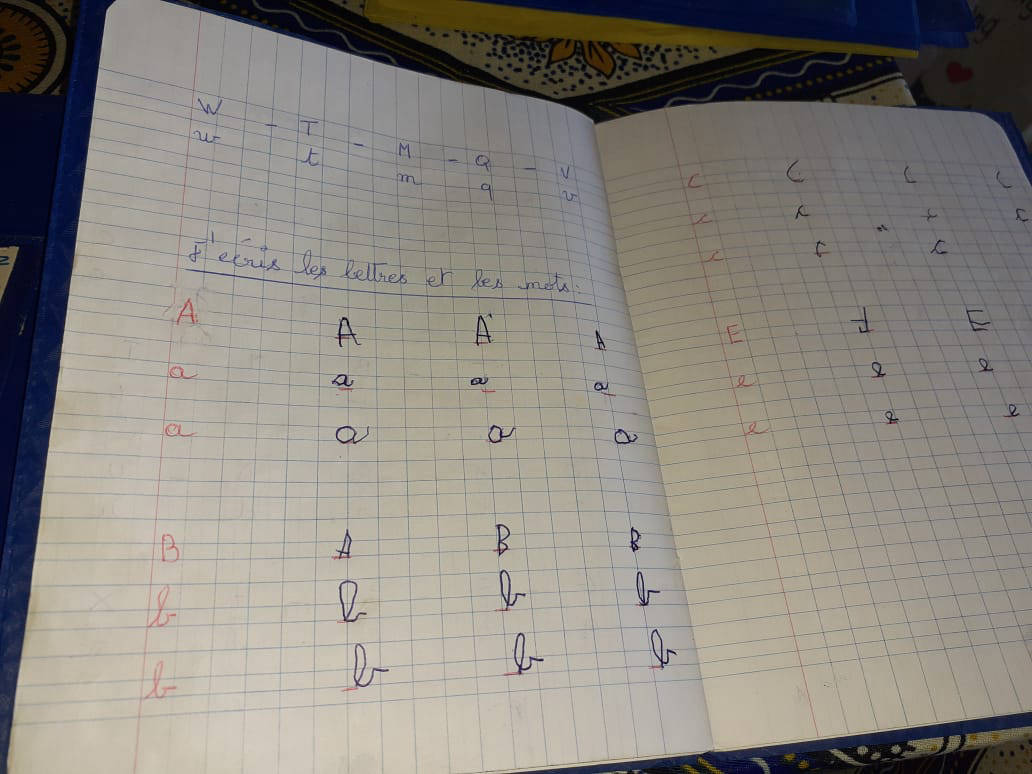 W - T - M - Q - V
w t m q v
J'écris les lettres et les mots.
A A A A
a a a a
a a a a
B A B B
b b b b
b b b b
C C C C
c c c c
c c c
E E E
e e e
e e e